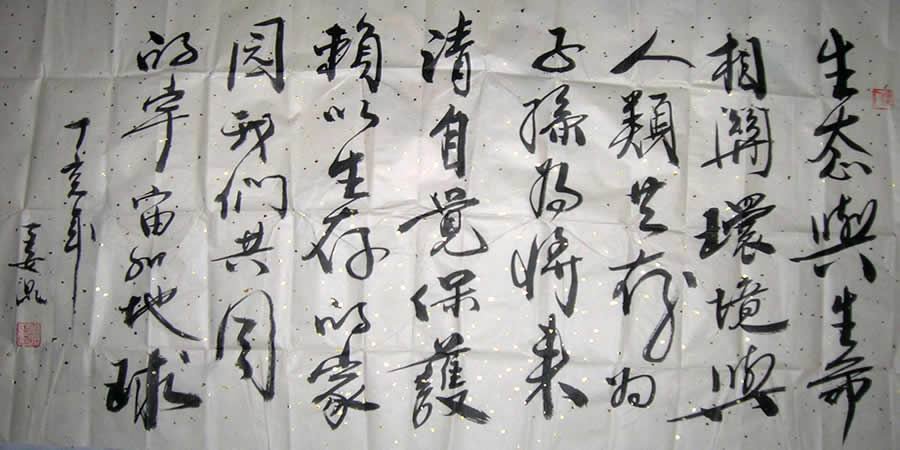 生态與生命
相關環境與
人類共存为
子孫为將来
请自覺保護
賴以生存的家
园我們共同
的宇宙和地球
丁亥年